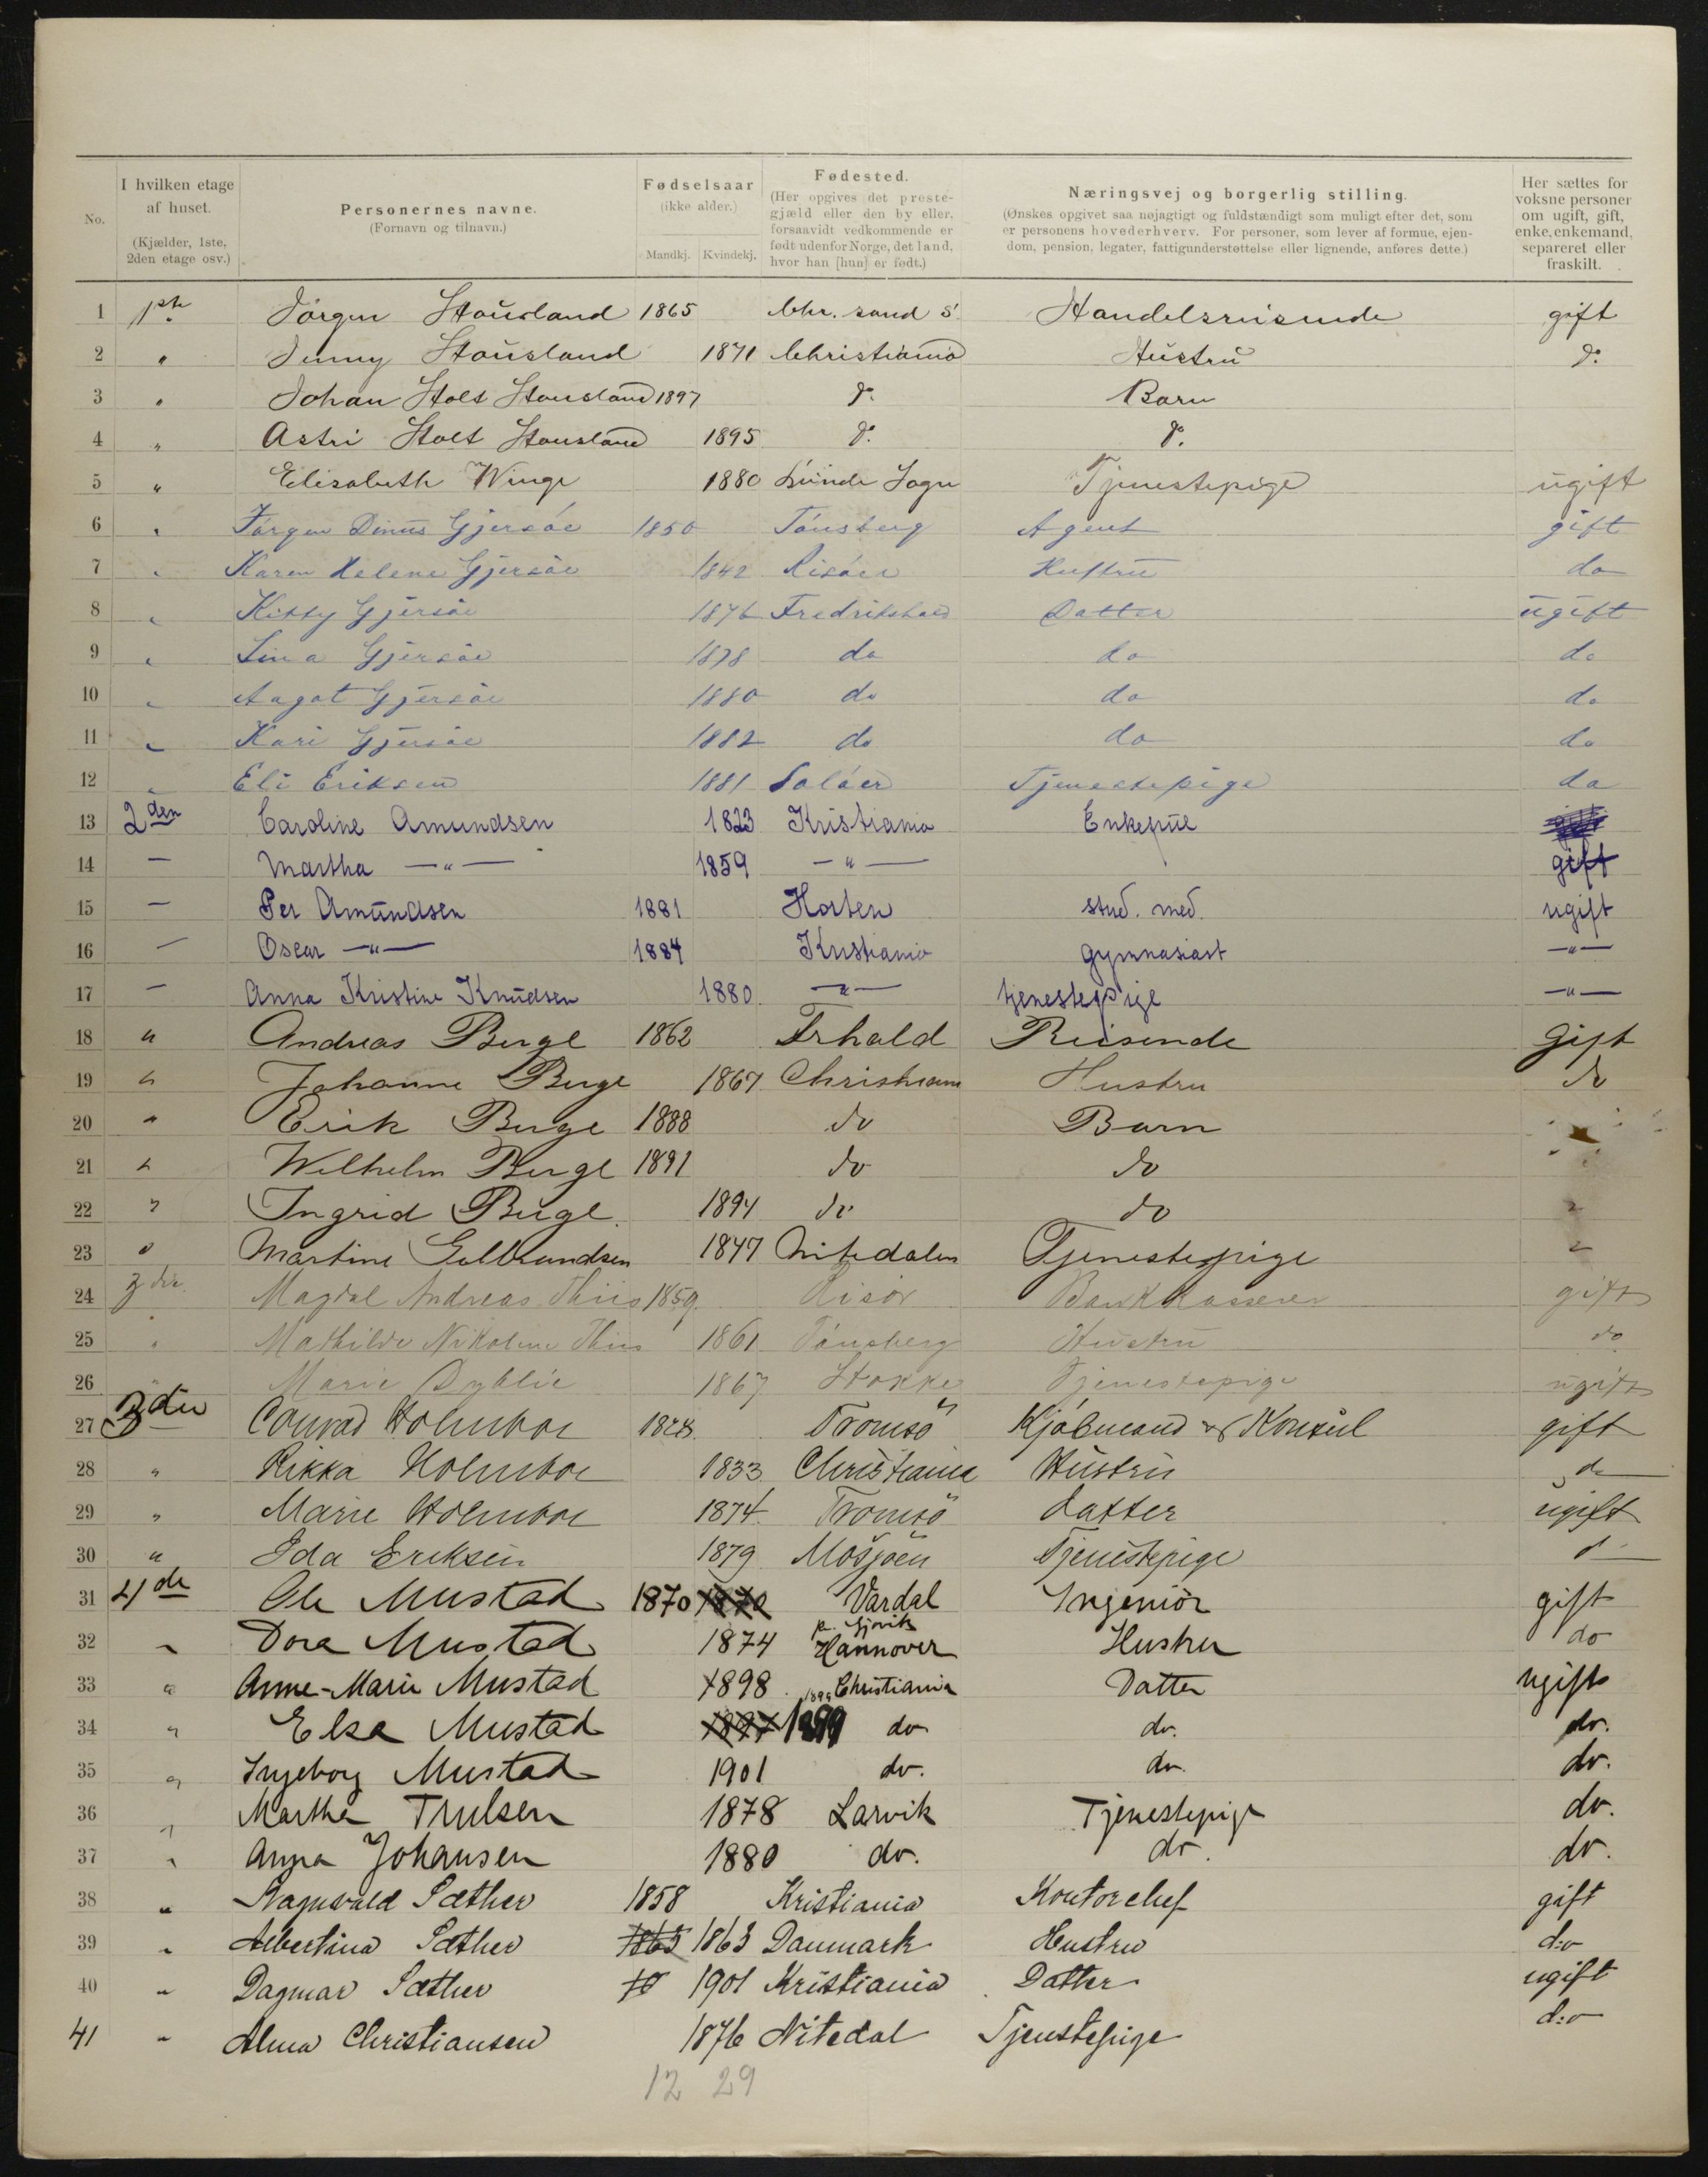 No.
I hvilken etage af huset. (Kjælder, 1ste, 2den etage osv.)
Personernes navne. (Fornavn og tilnavn.)
Fødselsaar (ikke alder.) Mandkj. Kvindekj.
Fødested. (Her opgives det prestegjæld eller den by eller, forsaavidt vedkommende er født udenfor Norge, det land, hvor han [hun] er født.)
Næringsvej og borgerlig stilling. (Ønskes opgivet saa nøjagtigt og fuldstændigt som muligt efter det, som er personens hovederhverv. For personer, som lever af formue, ejendom, pension, legater, fattigunderstøttelse eller lignende, anføres dette.)
Her sættes for voksne personer om ugift, gift, enke, enkemand, separeret eller fraskilt.
1 1ste Jörgen Stousland 1865 Chr. sand S. Handelsreisende gift
2 " Jenny Stousland 1871 Christiania Hustru do
3 " Johan Stolt Stousland 1897 do Barn
4 " Astri Stolt Stousland 1895 do do
5 " Elisabeth Winge 1880 Sogn Tjenestepige ugift
6 " Jørgen Dinus Gjersøe 1850 Tønsberg Agent gift
7 " Karen Helene Gjersøe 1842 Risøer Hustru do
8 " Kitty Gjersøe 1876 Fredrikshald Datter ugift
9 " Lina Gjersøe 1878 do do do
10 " Aagot Gjersøe 1880 do do do
11 " Kari Gjersøe 1882 do do do
12 " Eli Eriksen 1881 Soløer Tjenestepige do
13 2den Caroline Amundsen 1823 Kristiania Enkefrue
14 — Martha —"— 1859 —"— gift
15 — Per Amundsen 1881 Horten stud. med. ugift
16 — Oscar —"— 1884 Kristiania gymnasiast —"—
17 — Anna Kristine Knudsen 1880 —"— tjenestepige —"—
18 " Andreas Berge 1862 Frhald Reisende Gift
19 " Johanne Berge 1867 Christiania Hustru do
20 " Erik Berge 1888 do Barn
21 " Wilhelm Berge 1891 do do
22 " Ingrid Berge 1894 do do "
23 " Martine Gulbrandsen 1847 Nitedalen Tjenestepige "
24 3die Magdal Andreas Thiis 1859 Risör Bankkasserer gift
25 " Mathilde Nikoline Thiis 1861 Tönsberg Hustru do
26 " Marie Dyblie 1867 Stokke Tjenestepige ugift
27 3die Conrad Holmboe 1828 Tromsö Kjöbmand & Konsul gift
28 " Rikka Holmboe 1833 Christiania Hustru do
29 " Marie Holmboe 1874 Tromsö datter ugift
30 " Ida Eriksen 1879 Mosjöen Tjenestepige d
31 4de Ole Mustad 1870 1870 Vardal p. Gjøvik Ingeniør gift
32 " Dora Mustad 1874 Hannover Hustru do
33 " Anne-Marie Mustad 1898 1898 Christiania Datter ugift
34 " Else Mustad 1897 1899 do do. do.
35 " Ingeborg Mustad 1901 do. do. do.
36 " Martha Trulsen 1878 Larvik Tjenestepige do.
37 " Anna Johansen 1880 do. do. do.
38 " Ragnvald Sæther 1858 Kristiania Kontorchef gift
39 " Albertina Sæther 1865 1863 Danmark Hustru d:o
40 " Dagmar Sæther 10 1901 Kristiania Datter ugift
41 " Alma Christiansen 1876 Nitedal Tjenstepige d:o
12 29